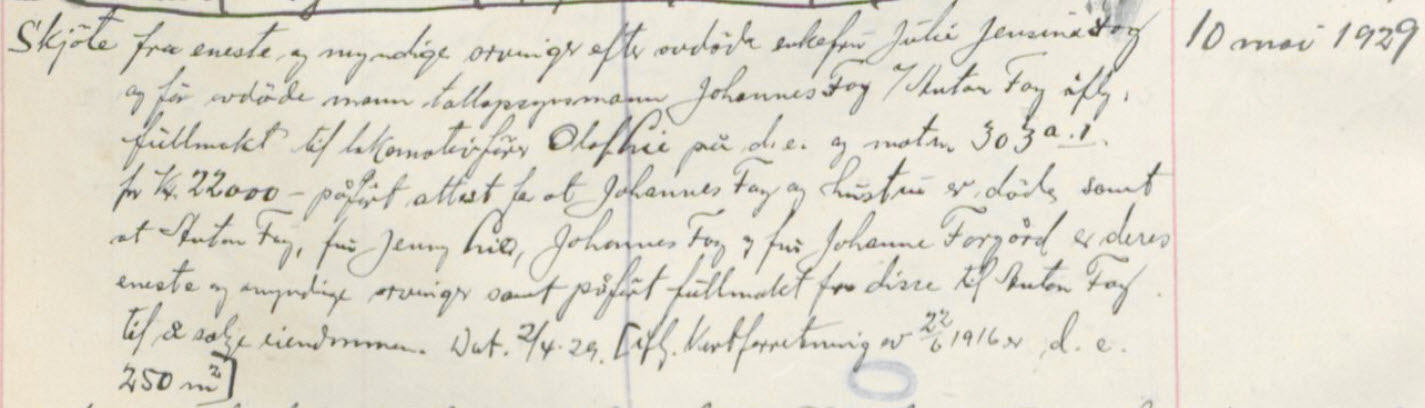 Skjöte fra eneste og myndige arvinger efter avdöde enkefru Julie Jensine Foy 10 mai 1929
og för avdöde mann tallapsynsmann Johannes Foy v/ Anton Foy ifly.
füllmakt til lokomotivförer Olaf Lie på d. e. og matr. 303 a.1.
for Kr. 22000 – påfört attest for at Johannes Foy og hustru er döde samt
at Anton Foy, frü Jenny Lie, Johannes Foy og frü Johanne Forgård er deres
eneste og myndige arvinger samt påfört füllmakt fra disse til Anton Foy
til å selge eiendommen. Dat. 2/4.29. [ifl. Kartforretning av 22/6 1916 er d. e.
250 m²]